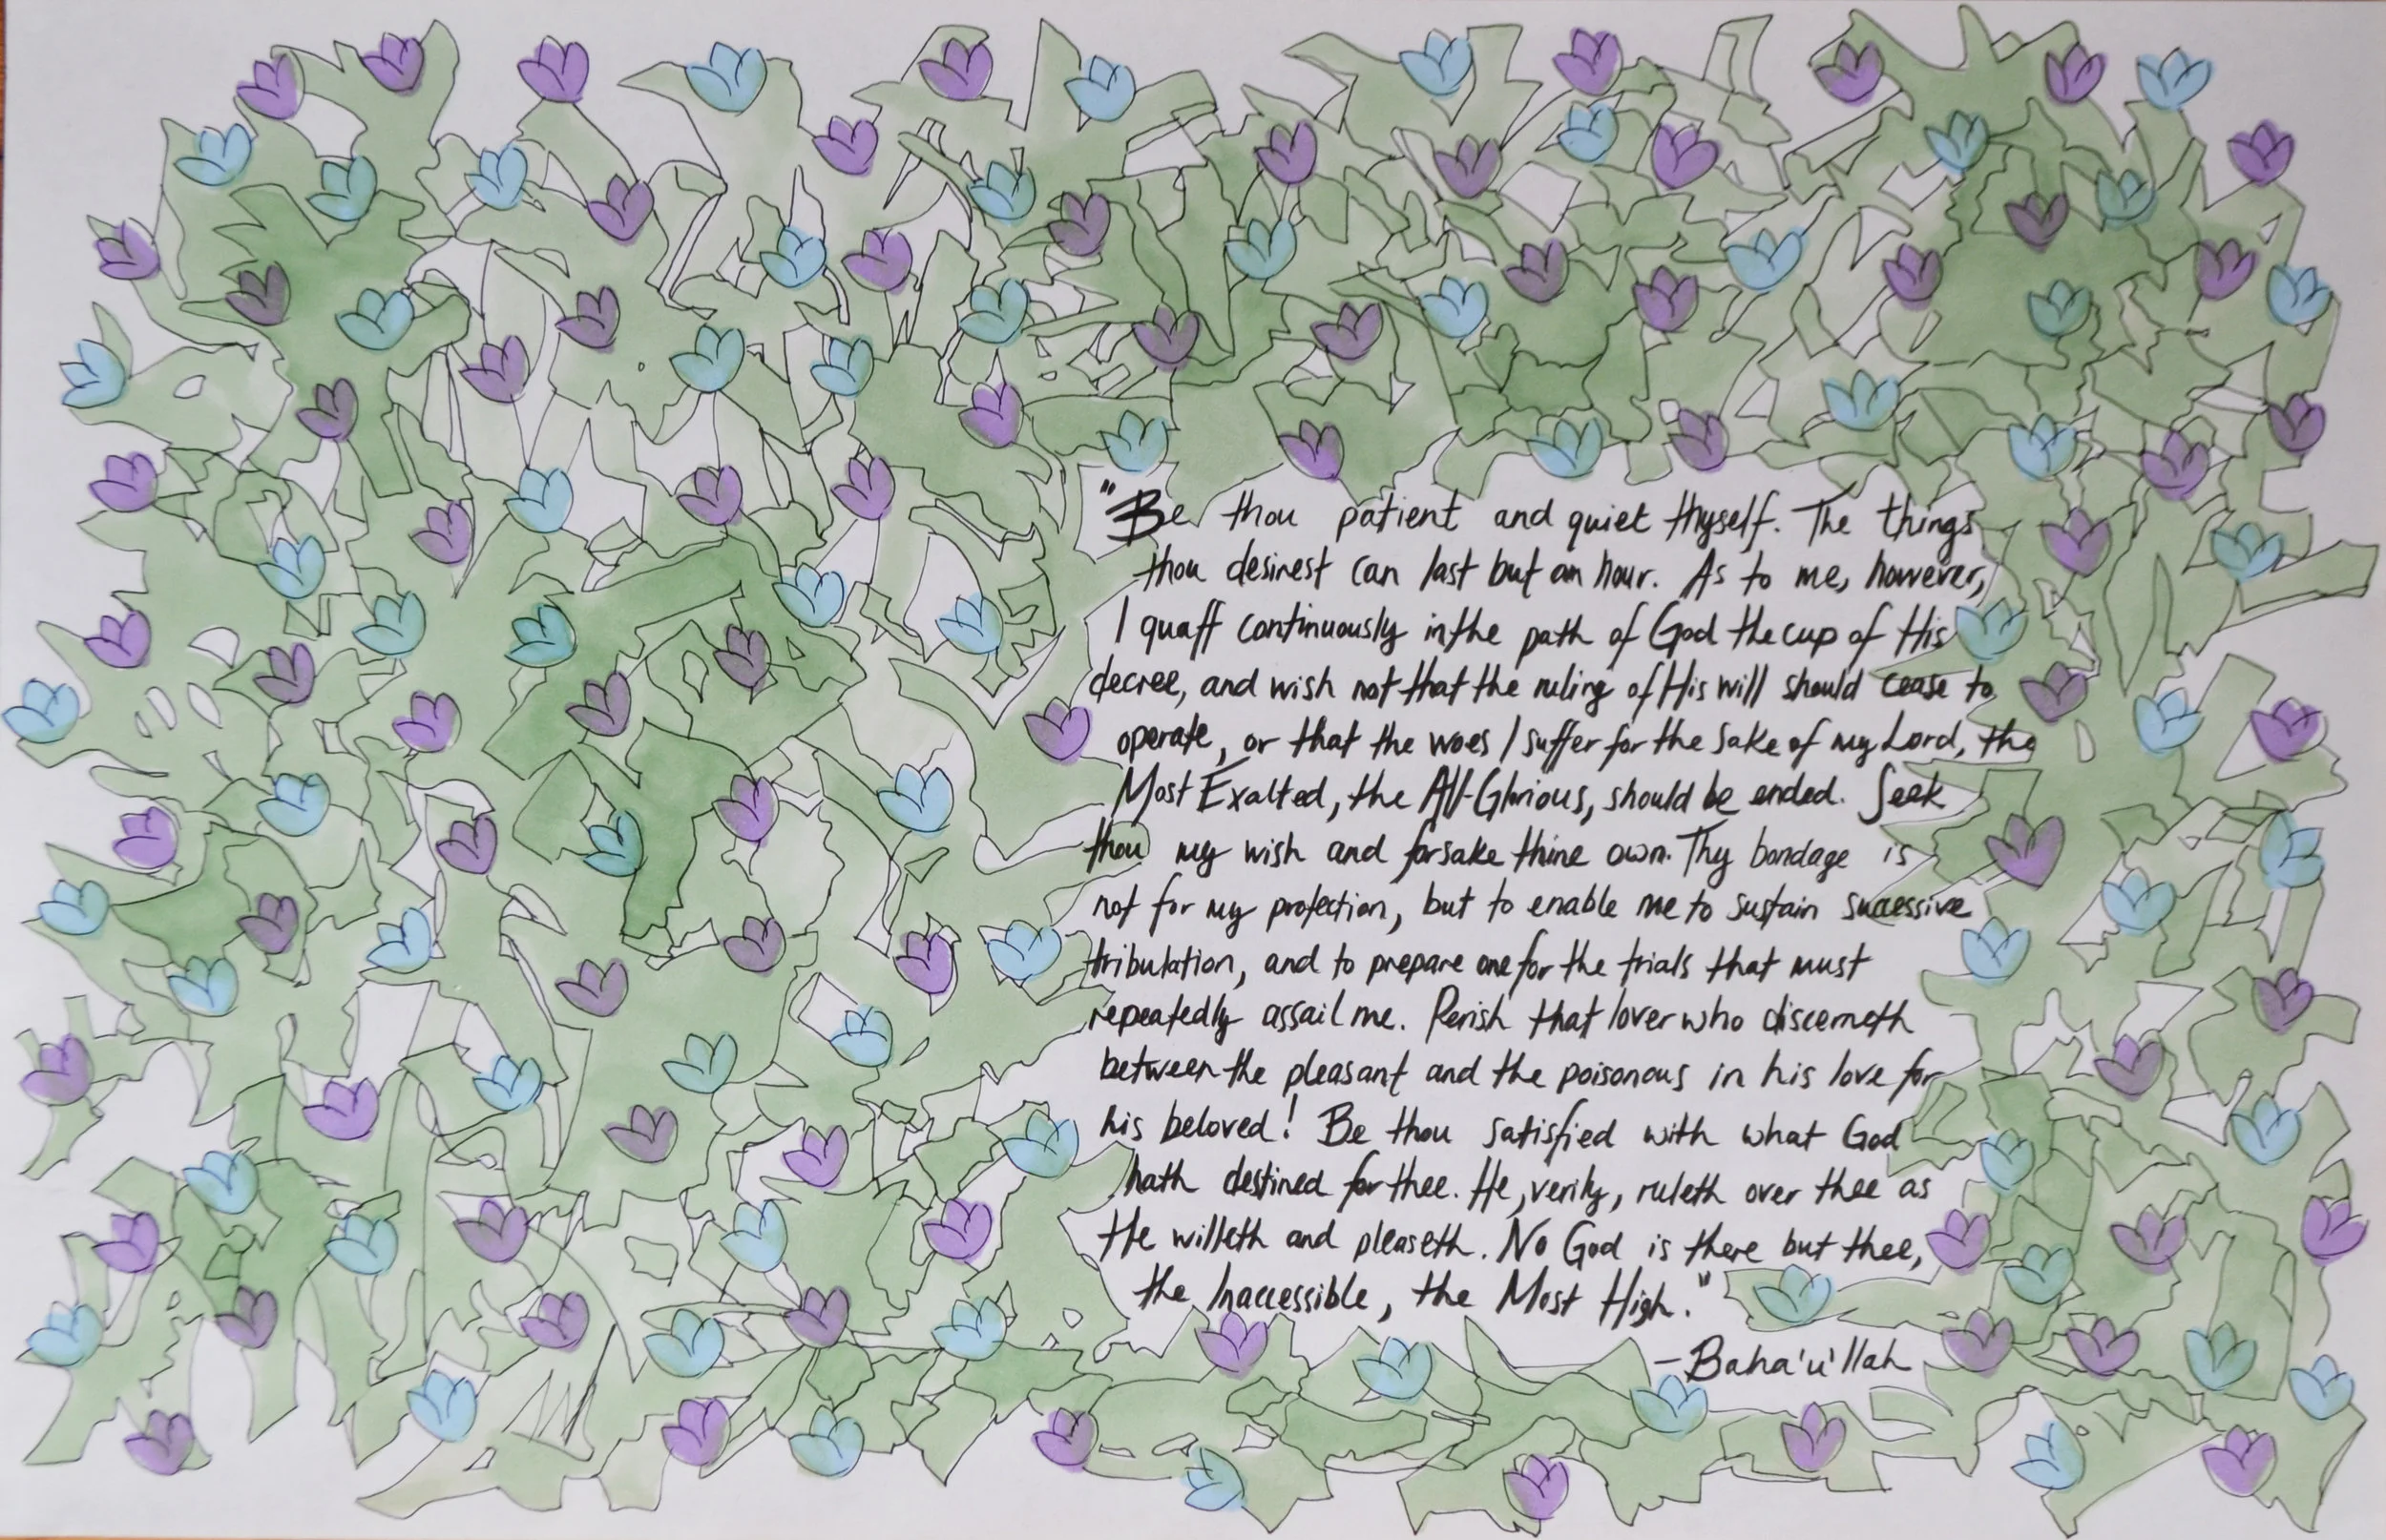 "Be thou patient and quiet thyself. The things
thou desirest can last but an hour. As to me, however,
I quaff continuously in the path of God the cup of His
decree, and wish not that the ruling of His will should cease to
operate, or that the woes I suffer for the sake of my Lord, the
Most Exalted, the All-Glorious, should be ended. Seek
thou my wish and forsake thine own. Thy bondage is
not for my protection, but to enable me to sustain successive
tribulation, and to prepare one for the trials that must
repeatedly assail me. Perish that lover who discerneth
between the pleasant and the poisonous in his love for
his beloved! Be thou satisfied with what God
hath destined for thee. He, verily, ruleth over thee as
He willeth and pleaseth. No God is there but thee,
the Inaccessible, the Most High."
-Baha'u'llah